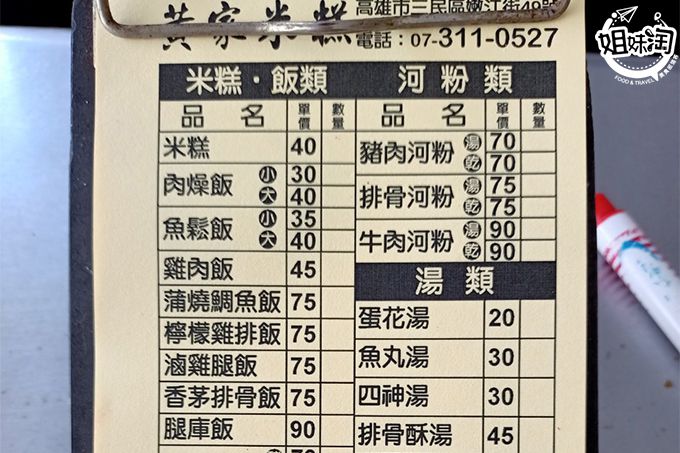 黃家米糕
高雄市三民區嫩江街49號
電話：07-311-0527
米糕·飯類
品名 單價 數量
米糕 40
肉燥飯 小 30
大 40
魚鬆飯 小 35
大 40
雞肉飯 45
蒲燒鯛魚飯 75
檸檬雞排飯 75
滷雞腿飯 75
香茅排骨飯 75
腿庫飯 90
河粉類
品名 單價 數量
豬肉河粉 湯 70
乾 70
排骨河粉 湯 75
乾 75
牛肉河粉 湯 90
乾 90
湯類
蛋花湯 20
魚丸湯 30
四神湯 30
排骨酥湯 45
姐妹淘
FOOD & TRAVEL